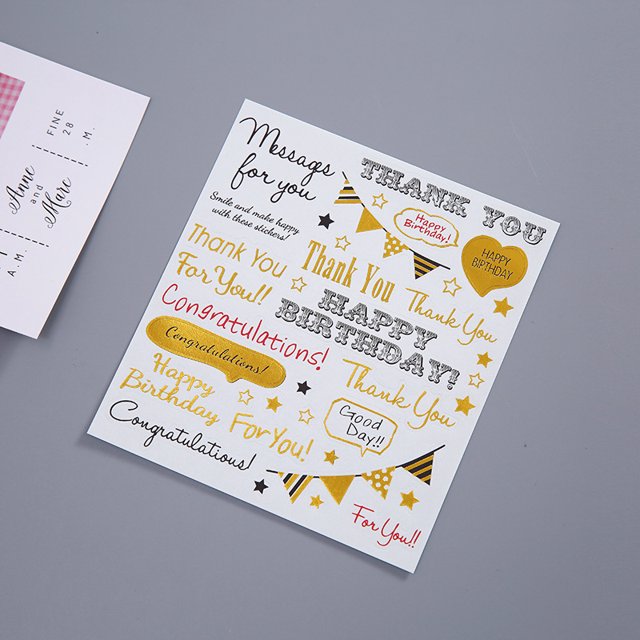 FINE
28
.M.
Anne
and
Marc
A.M.
Messags
for you
Smile and make happy
with these stickers!
THANK YOU
Happy
Birthday!
HAPPY
BIPTHDAY
Thank You
For You!!
Thank You
Thank You
Congratulations!
HAPPY
BIRTHDAY!
Congratulations!
Thank You
Happy
Birthday
For You!
Good
Day!!
Congratulations!
For You!!